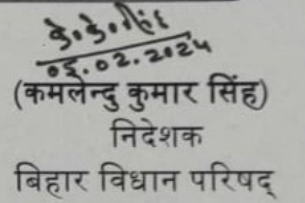 के॰के॰सिंह
०६.०२.२०२४
(कमलेन्दु कुमार सिंह)
निदेशक
बिहार विधान परिषद्